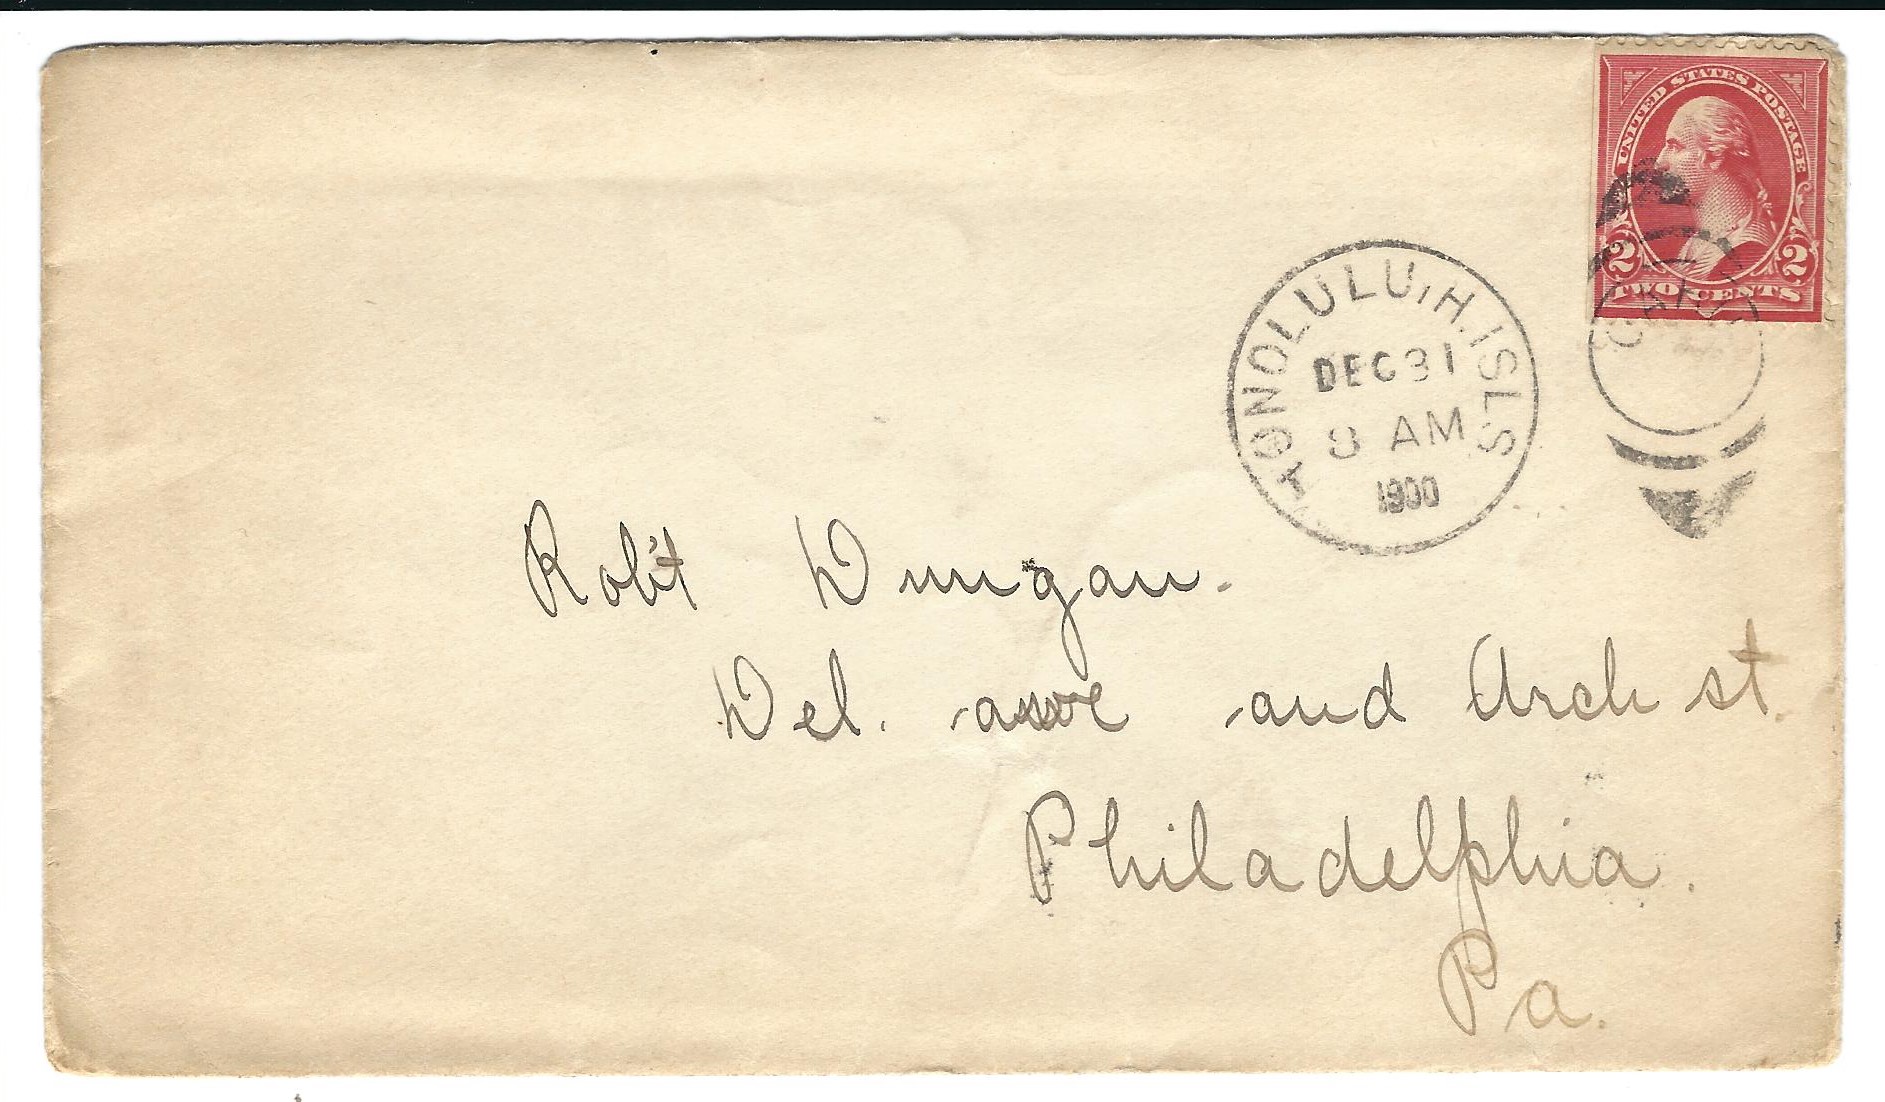 UNITED STATES POSTAGE
2 2
TWO CENTS
HONOLULU, H. ISLS
DEC 31
8 AM
1900
OAHU
Rob't Dungan.
Del. ave and Arch st.
Philadelphia.
Pa.